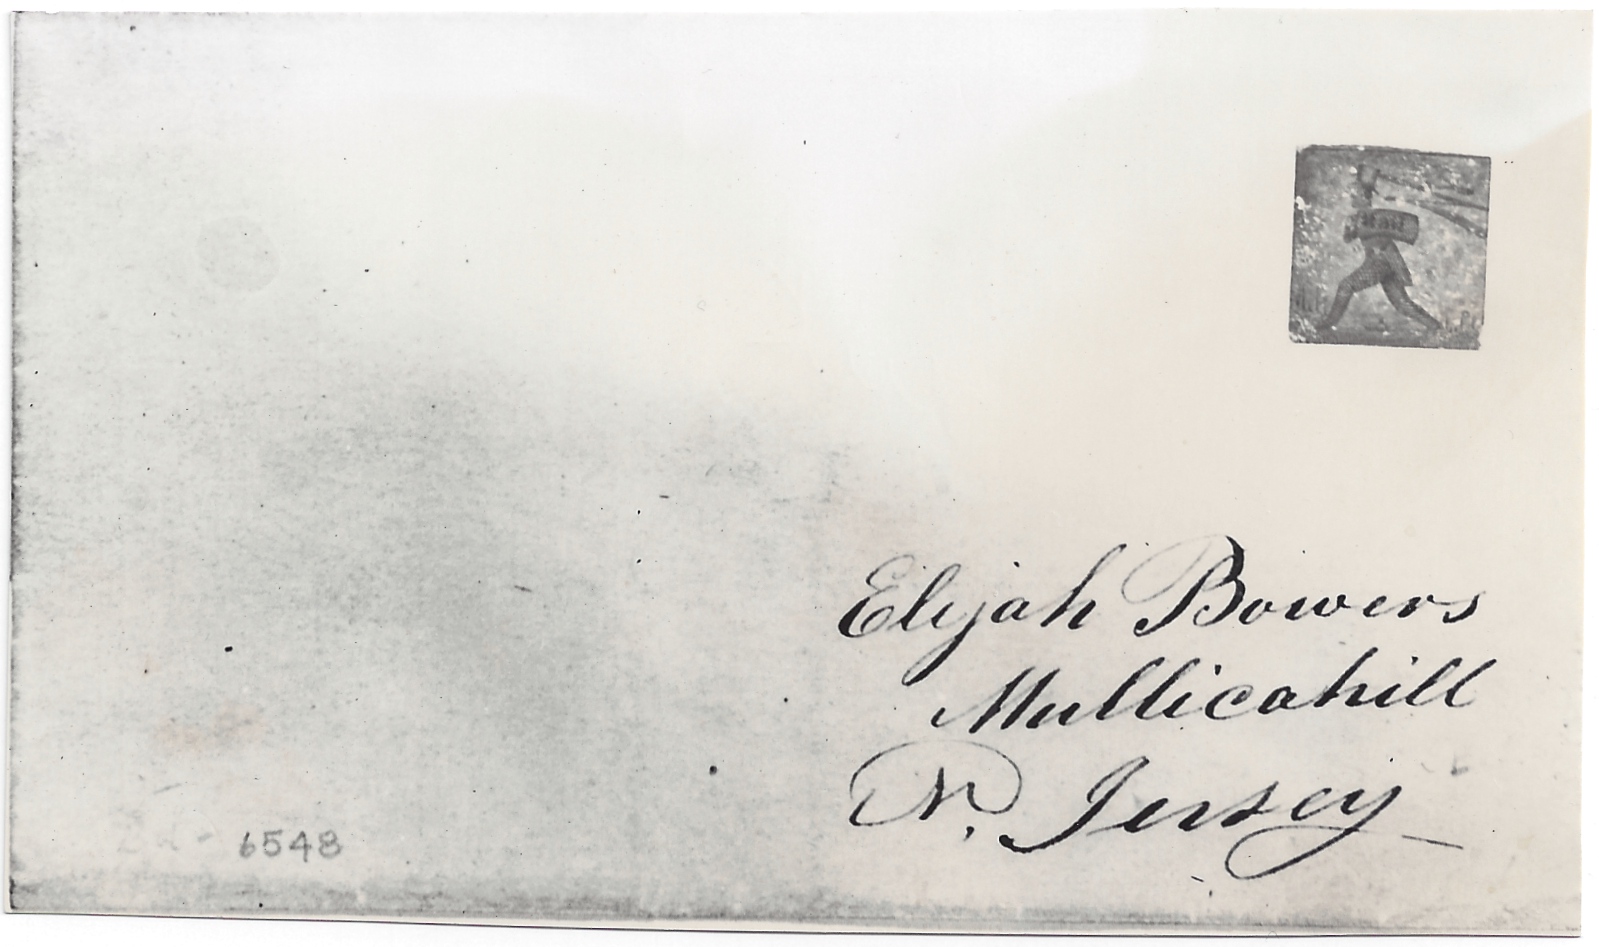 Elijah Bowers
Mullicahill
N. Jersey
6548